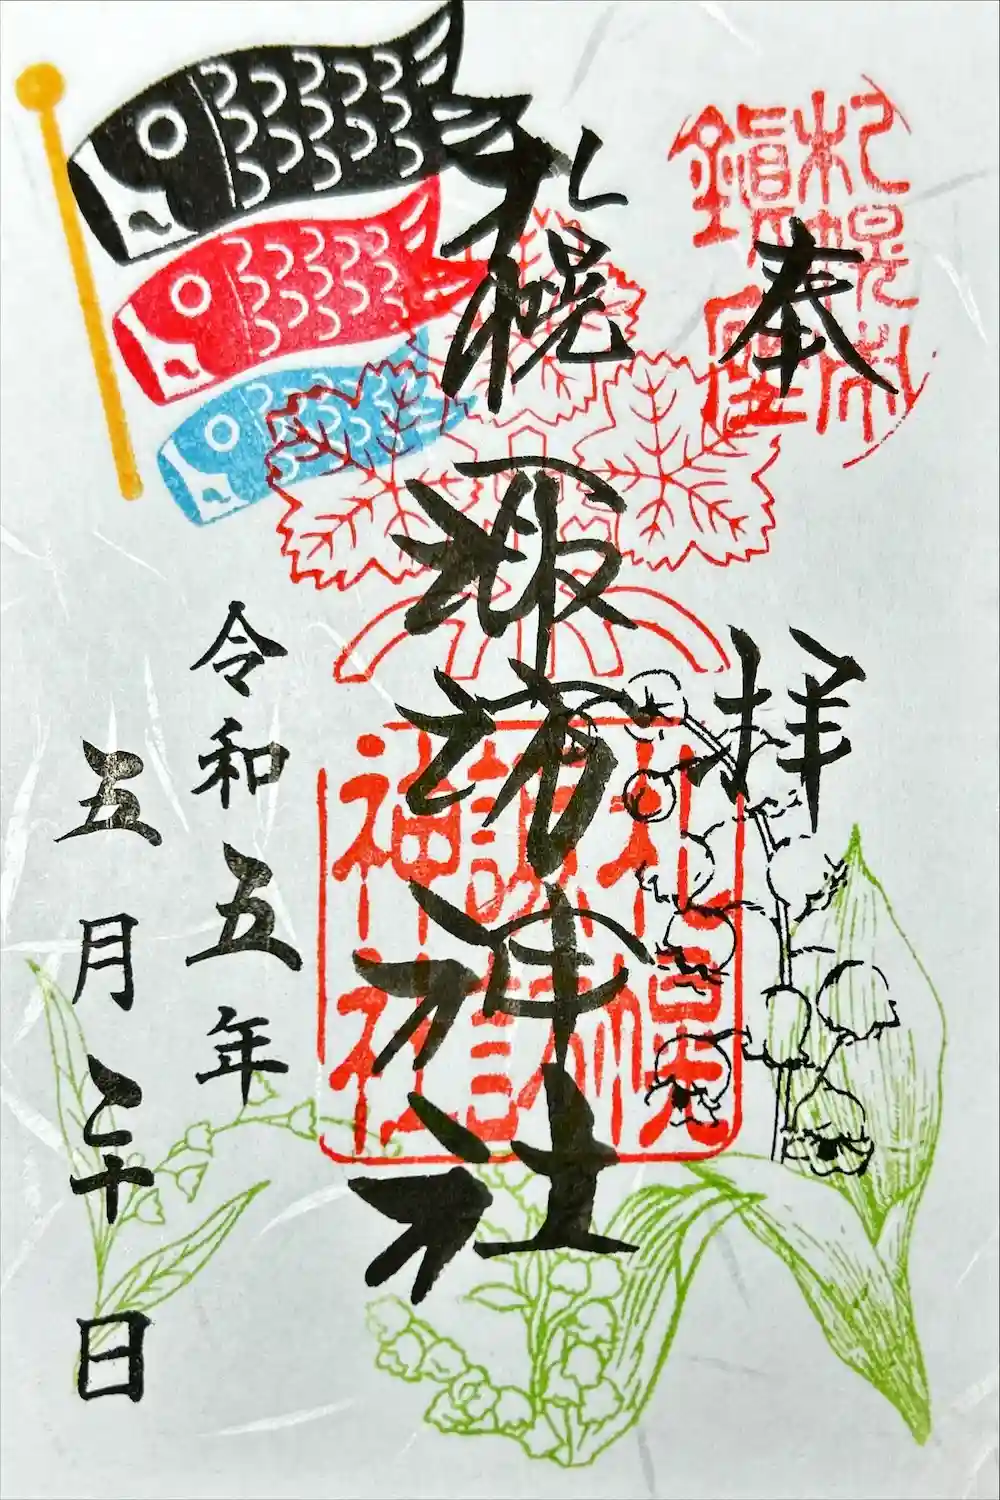 奉拝
札幌市鎮座
札幌諏訪神社
札幌諏訪神社
令和五年
五月二十日